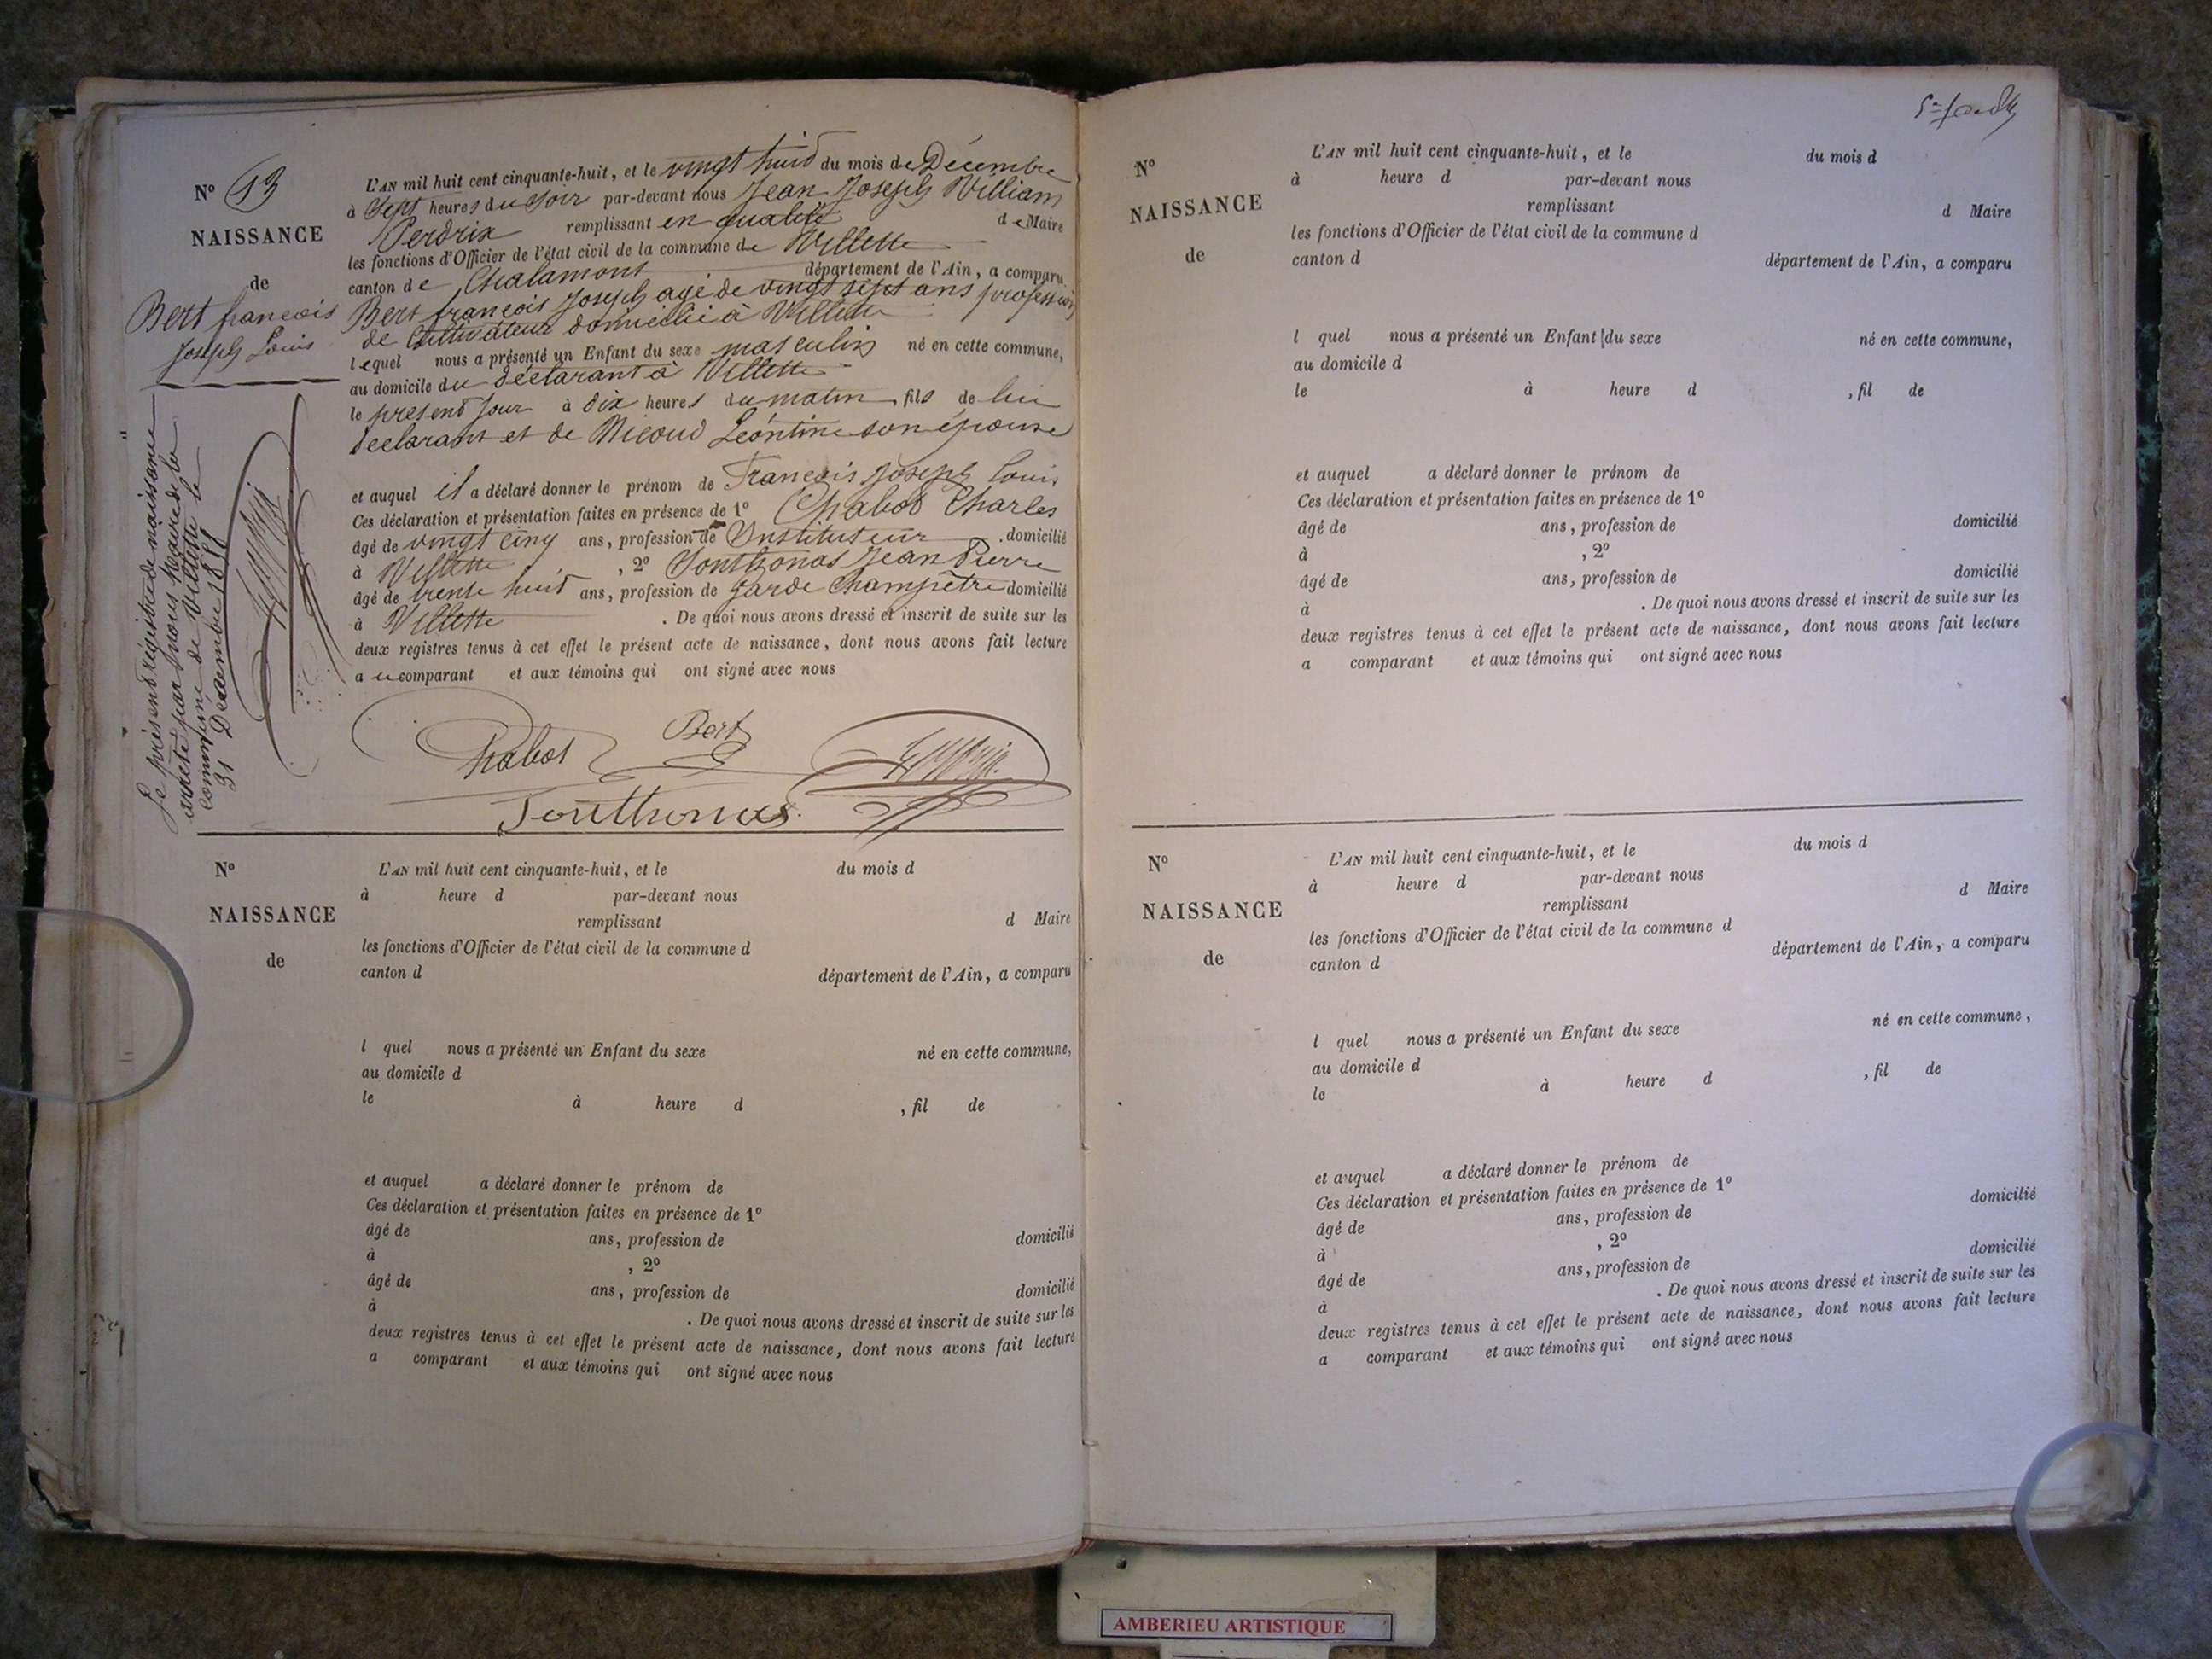 N° 13
NAISSANCE
de
Bert françois
Joseph Louis
L'AN mil huit cent cinquante-huit, et le vingt huit du mois de Décembre
à Sept heures du soir par-devant nous Jean Joseph William
Perdrix remplissant en qualité de Maire
les fonctions d'Officier de l'état civil de la commune de Villette
canton de Chalamont département de l'Ain, a comparu
Bert françois Joseph agé de vingt sept ans profession
de Cultivateur domicilié à Villette
lequel nous a présenté un Enfant du sexe masculin né en cette commune,
au domicile du déclarant à Villette
le présent jour à dix heures du matin fils de lui
déclarant et de Nicoud Léontine son épouse
et auquel il a déclaré donner le prénom de François Joseph Louis
Ces déclaration et présentation faites en présence de 1° Chabot Charles
âgé de vingt cinq ans, profession de Instituteur domicilié
à Villette , 2° Jonthonas Jean Pierre
âgé de trente huit ans, profession de Garde Champêtre domicilié
à Villette . De quoi nous avons dressé et inscrit de suite sur les
deux registres tenus à cet effet le présent acte de naissance, dont nous avons fait lecture
au comparant et aux témoins qui ont signé avec nous
Chabot Bert
Jonthonas
Le présent régistre de naissance
arrêté par nous Maire de la
commune de Villette le
31 Décembre 1858
N°
NAISSANCE
de
L'AN mil huit cent cinquante-huit, et le du mois d
à heure d par-devant nous
remplissant d Maire
les fonctions d'Officier de l'état civil de la commune d
canton d département de l'Ain, a comparu
l quel nous a présenté un Enfant du sexe né en cette commune,
au domicile d
le à heure d , fil de
et auquel a déclaré donner le prénom de
Ces déclaration et présentation faites en présence de 1°
âgé de ans, profession de domicilié
à , 2°
âgé de ans, profession de domicilié
à . De quoi nous avons dressé et inscrit de suite sur les
deux registres tenus à cet effet le présent acte de naissance, dont nous avons fait lecture
a comparant et aux témoins qui ont signé avec nous
N°
NAISSANCE
de
L'AN mil huit cent cinquante-huit, et le du mois d
à heure d par-devant nous
remplissant d Maire
les fonctions d'Officier de l'état civil de la commune d
canton d département de l'Ain, a comparu
l quel nous a présenté un Enfant du sexe né en cette commune,
au domicile d
le à heure d , fil de
et auquel a déclaré donner le prénom de
Ces déclaration et présentation faites en présence de 1°
âgé de ans, profession de domicilié
à , 2°
âgé de ans, profession de domicilié
à . De quoi nous avons dressé et inscrit de suite sur les
deux registres tenus à cet effet le présent acte de naissance, dont nous avons fait lecture
a comparant et aux témoins qui ont signé avec nous
N°
NAISSANCE
de
L'AN mil huit cent cinquante-huit, et le du mois d
à heure d par-devant nous
remplissant d Maire
les fonctions d'Officier de l'état civil de la commune d
canton d département de l'Ain, a comparu
l quel nous a présenté un Enfant du sexe né en cette commune,
au domicile d
le à heure d , fil de
et auquel a déclaré donner le prénom de
Ces déclaration et présentation faites en présence de 1°
âgé de ans, profession de domicilié
à , 2°
âgé de ans, profession de domicilié
à . De quoi nous avons dressé et inscrit de suite sur les
deux registres tenus à cet effet le présent acte de naissance, dont nous avons fait lecture
a comparant et aux témoins qui ont signé avec nous
AMBERIEU ARTISTIQUE